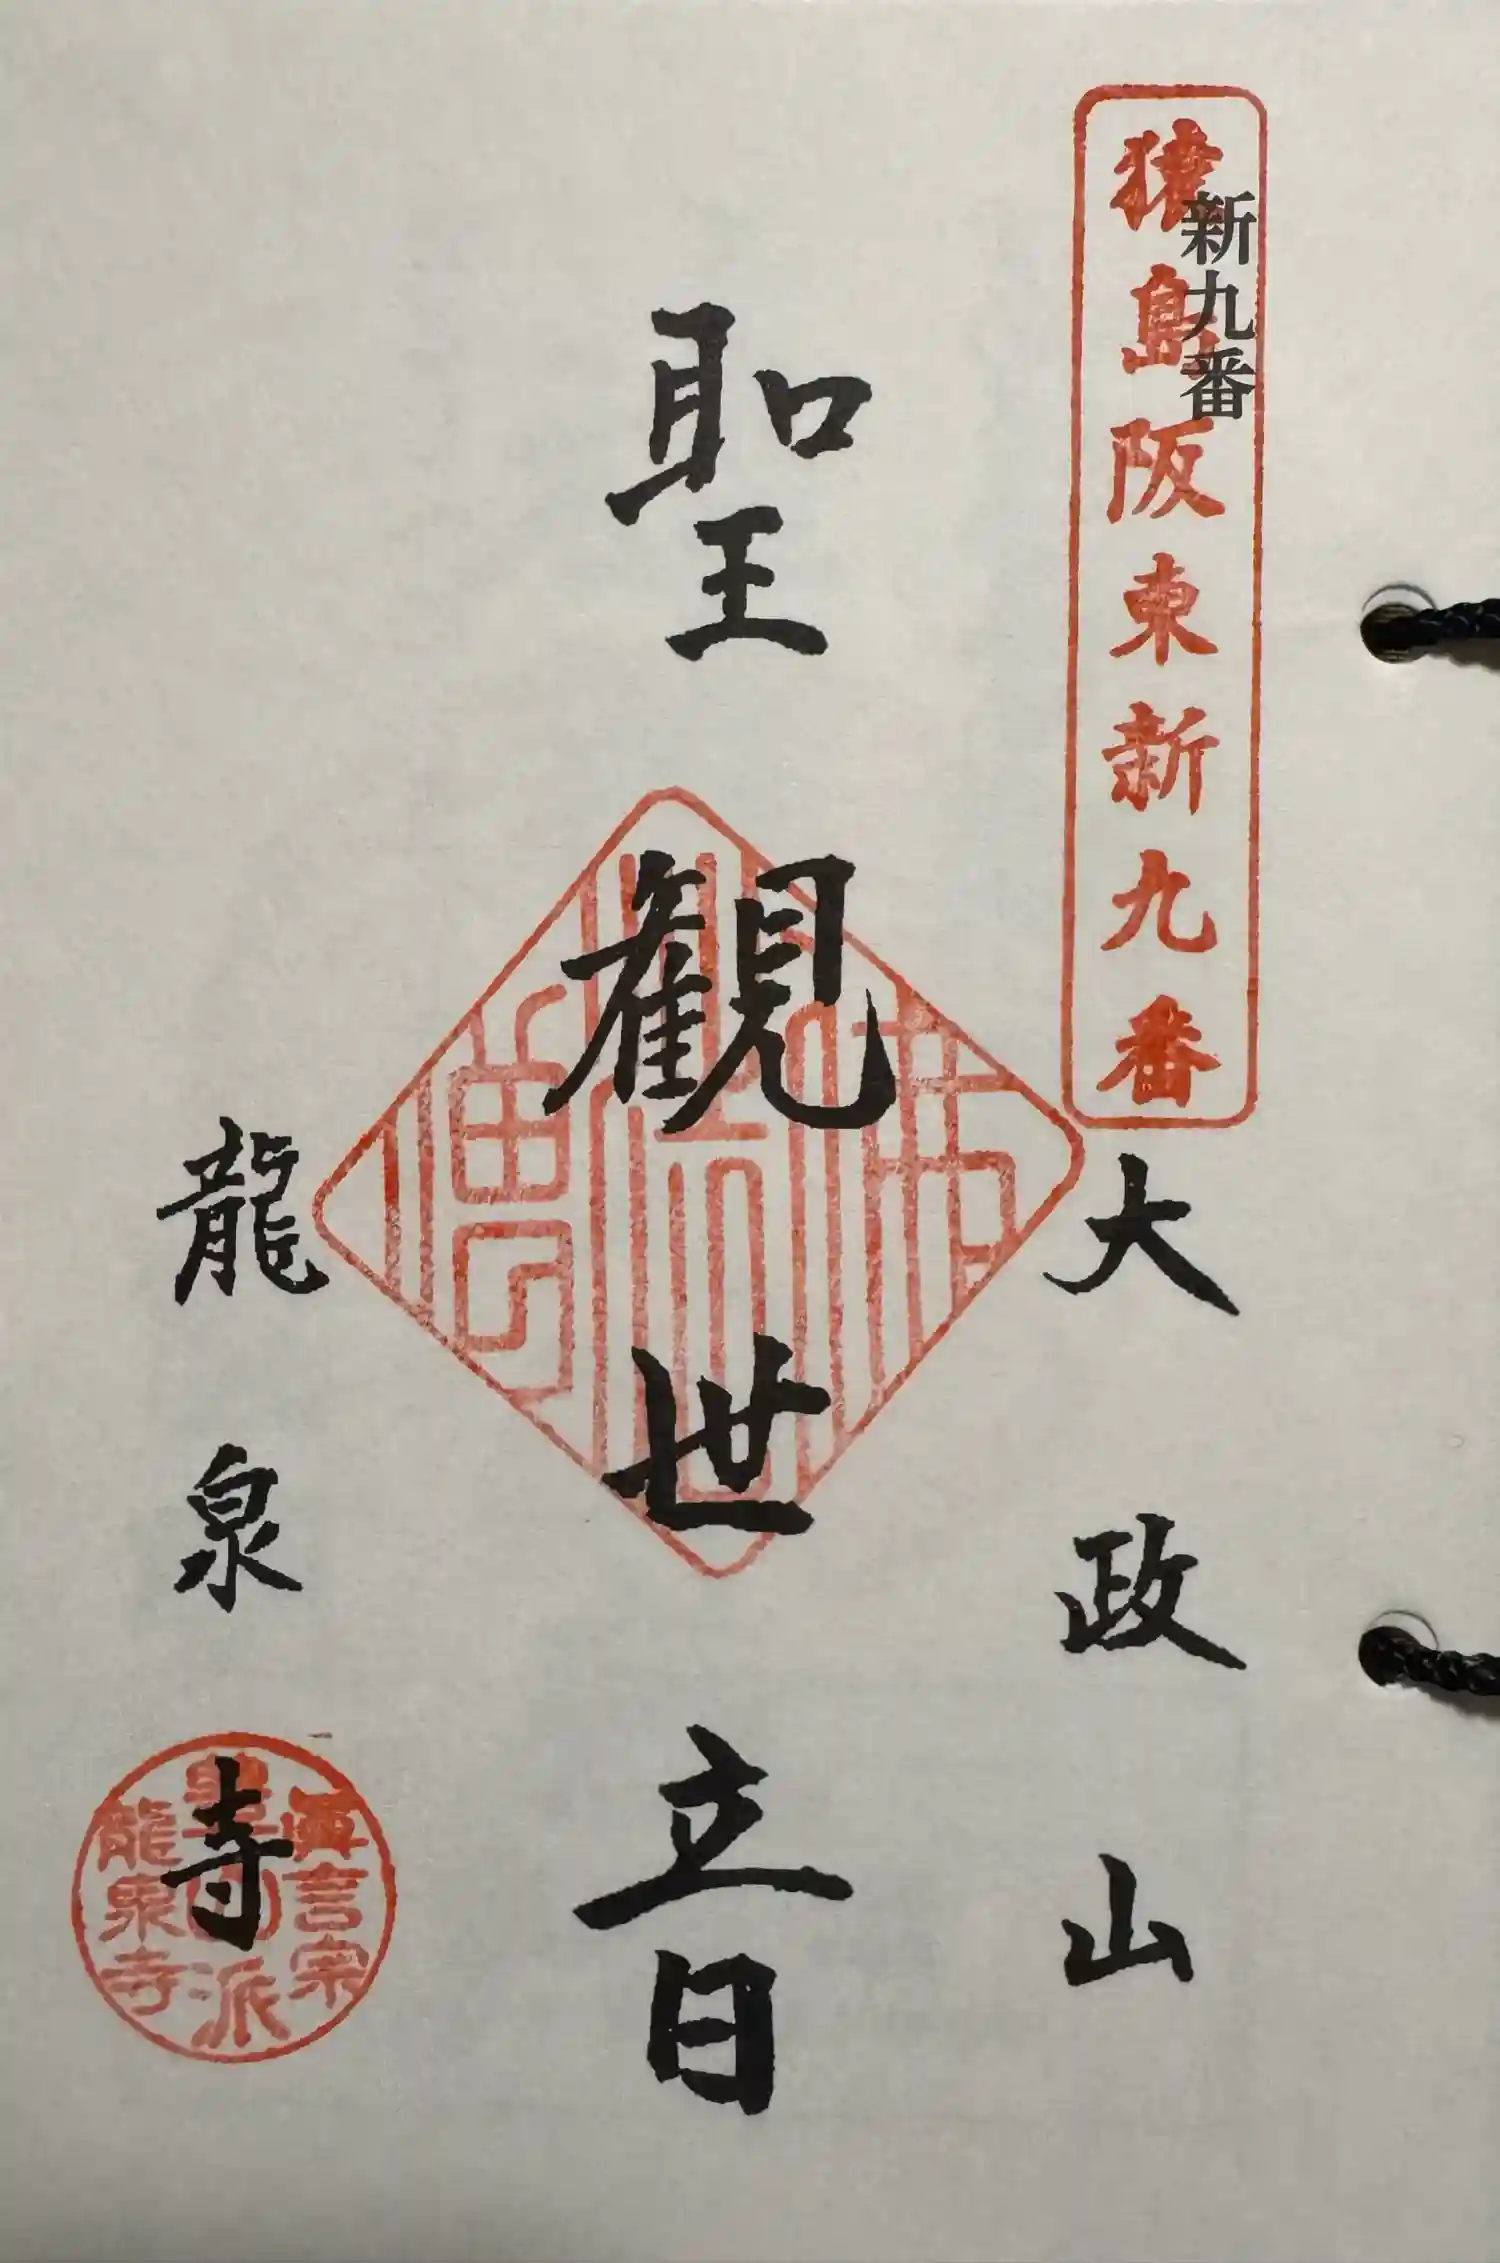 新九番
猿島阪東新九番
大政山
聖観世音
龍泉寺
真言宗
豊山派
龍泉寺